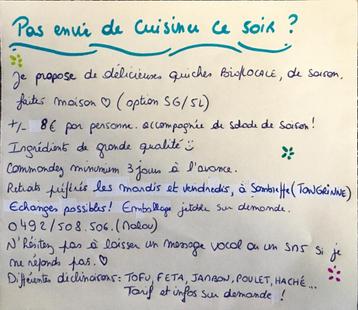 Pas envie de cuisiner ce soir ?
Je propose de délicieuses quiches BIO/LOCALE, de saison,
faites maison ♡ (option SG/SL)
+/- 8€ par personne. accompagnée de salade de saison !
Ingrédient de grande qualité
Commandez minimum 3 jours à l'avance.
Retraits préférés les mardis et vendredis, à Sombreffe (TONGRINNE)
Echanges possibles ! Emballage jetable sur demande.
0492/508.506. (Malou)
N'hésitez pas à laisser un message vocal ou un sms si je
ne réponds pas. ♡
Différentes déclinaisons : TOFU, FETA, JAMBON, POULET, HACHÉ...
Tarif et infos sur demande !